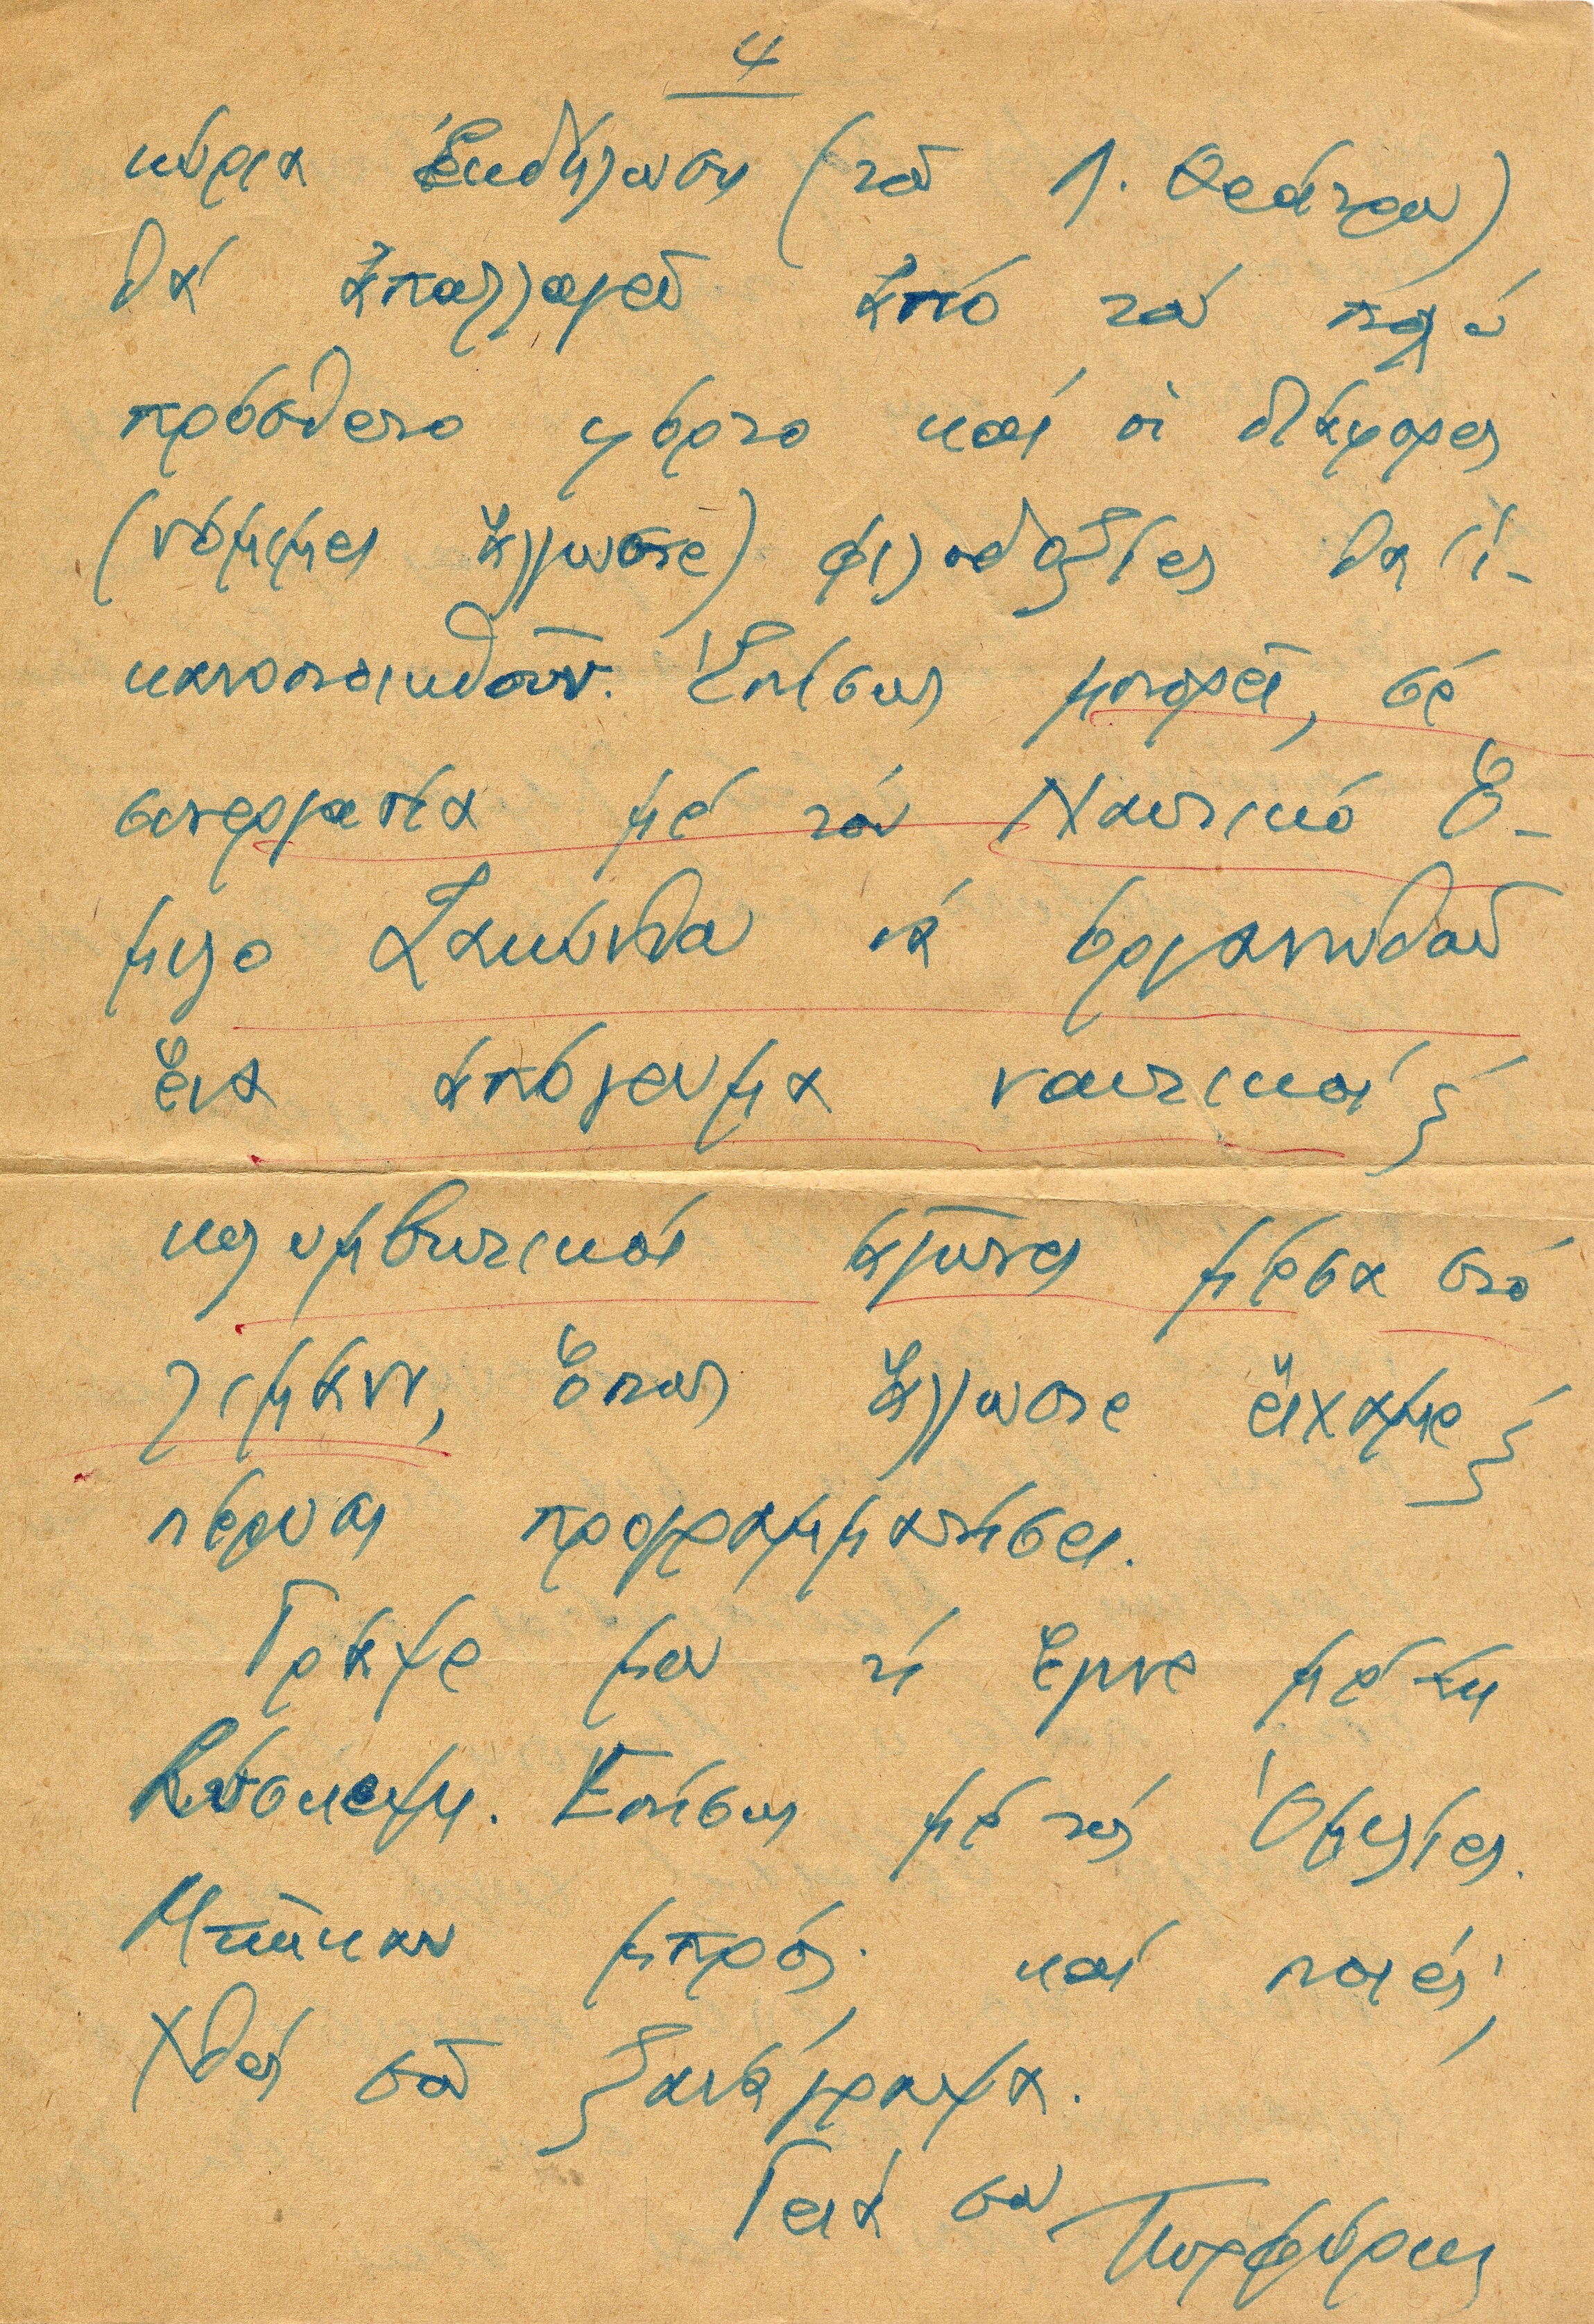 4
κύρια Ἐκδήλωση (τοῦ Λ. Θεάτρου)
θά ἀπαλλαγεῖ ἀπό τό πολύ
πρόσθετο φόρτο καί οἱ διάφορες
(νόμιμες ἄλλωστε) φιλοδοξίες θά ἱ-
κανοποιηθοῦν. Ἐπίσης μπορεῖ, σέ
συνεργασία μέ τόν Ναυτικό Ὅ-
μιλο Ζακύνθου νά ὀργανωθοῦν
ἕνα ἀπόγευμα ναυτικοί
κολυμβητικοί ἀγῶνες μέσα στό
λιμάνι, ὅπως ἄλλωστε εἴχαμε
πέρυσι προγραμματίσει.
Γράψε μου τί ἔγινε μέ τή
Σύσκεψη. Ἐπίσης μέ τίς Ὁμιλίες.
Μπῆκαν μπρός. καί ποιές;
Χθές σοῦ ξανάγραψα.
Γειά σου Πορφύρης